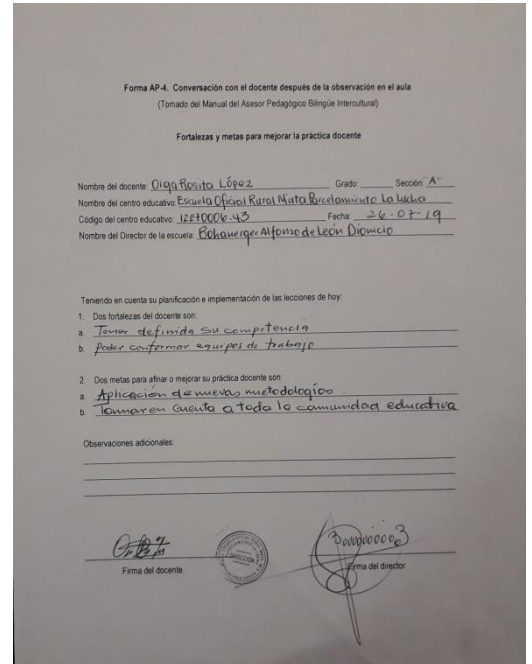 Forma AP-4. Conversación con el docente después de la observación en el aula
(Tomado del Manual del Asesor Pedagógico Bilingüe Intercultural)
Fortalezas y metas para mejorar la práctica docente
Nombre del docente: Olga Rosita López Grado: Sección: "A"
Nombre del centro educativo Escuela Oficial Rural Mixta Parcelamiento La Lucha
Código del centro educativo: Fecha: 26-07-19
Nombre del Director de la escuela: Alfonso de León Dionicio
Teniendo en cuenta su planificación e implementación de las lecciones de hoy:
1. Dos fortalezas del docente son:
a. Tener definida su competencia
b. Poder conformar equipos de trabajo
2. Dos metas para afinar o mejorar su práctica docente son:
a. Aplicación de nuevas metodologico
b. Tomar en cuenta a toda la comunidad educativa
Observaciones adicionales:
DIRECCION
Firma del docente Firma del director